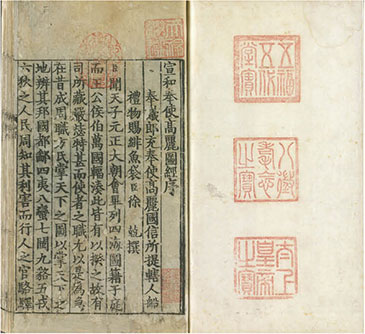 五福五代堂寶
八徵耄念之寶
太上皇帝之寶
宣和奉使高麗圖經序
奉議郎充奉使高麗國信所提轄人船
禮物賜緋魚袋臣徐兢撰
臣聞天子元正大朝會畢列四海圖籍于庭
而王公侯伯萬國輻湊此皆有以揆之故有
司所藏嚴毖特甚而使者之職尤以是為急
在昔成周職方氏掌天下之圖以掌天下之
地辨其邦國都鄙四夷八蠻七閩九貉五戎
六狄之人民周知其利害而行人之官絡繹